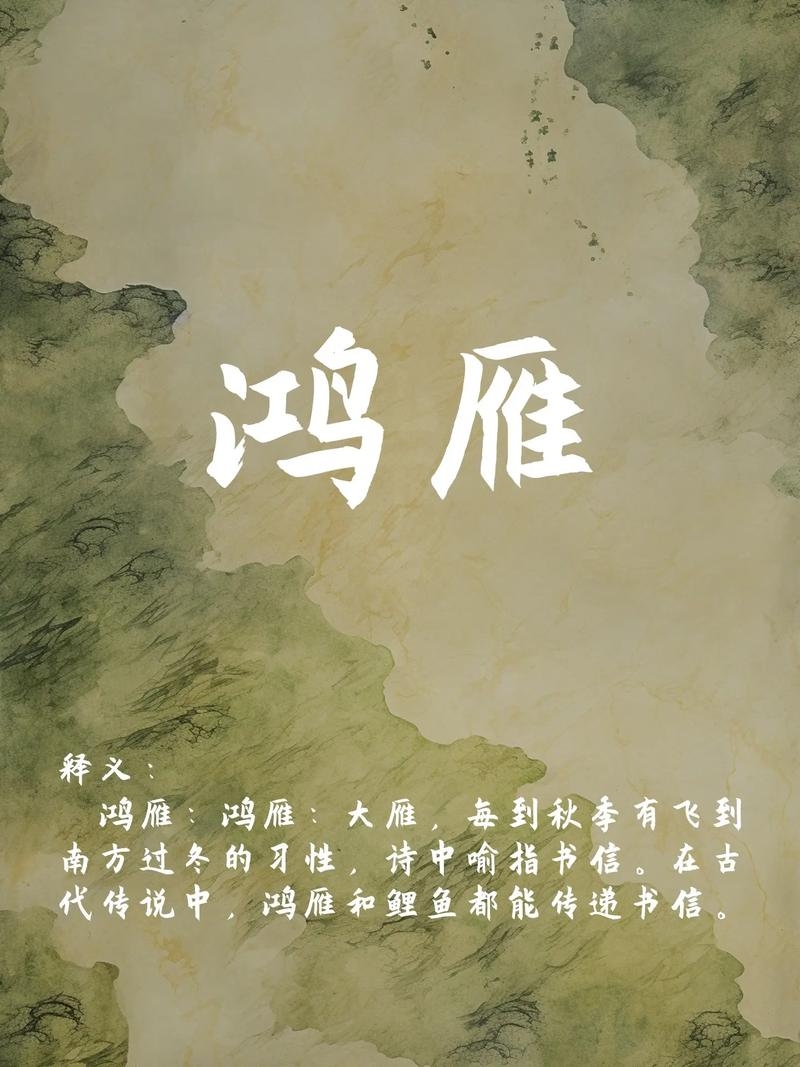 鸿雁
释义：
鸿雁：鸿雁：大雁，每到秋季有飞到
南方过冬的习性，诗中喻指书信。在古
代传说中，鸿雁和鲤鱼都能传递书信。